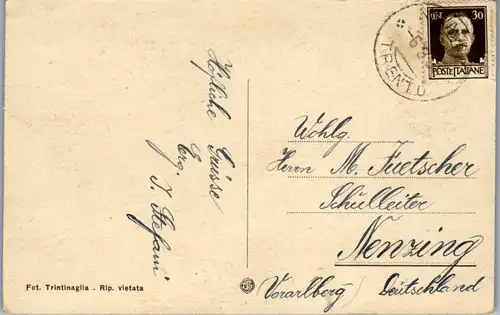 Höfliche Grüsse
erg.
J. Stefani
CENT. 30
POSTE ITALIANE
TRENTO
Wohlg.
Herrn M. Fuetscher
Schulleiter
Nenzing
(Vorarlberg) Deutschland
Fot. Trintinaglia - Rip. vietata